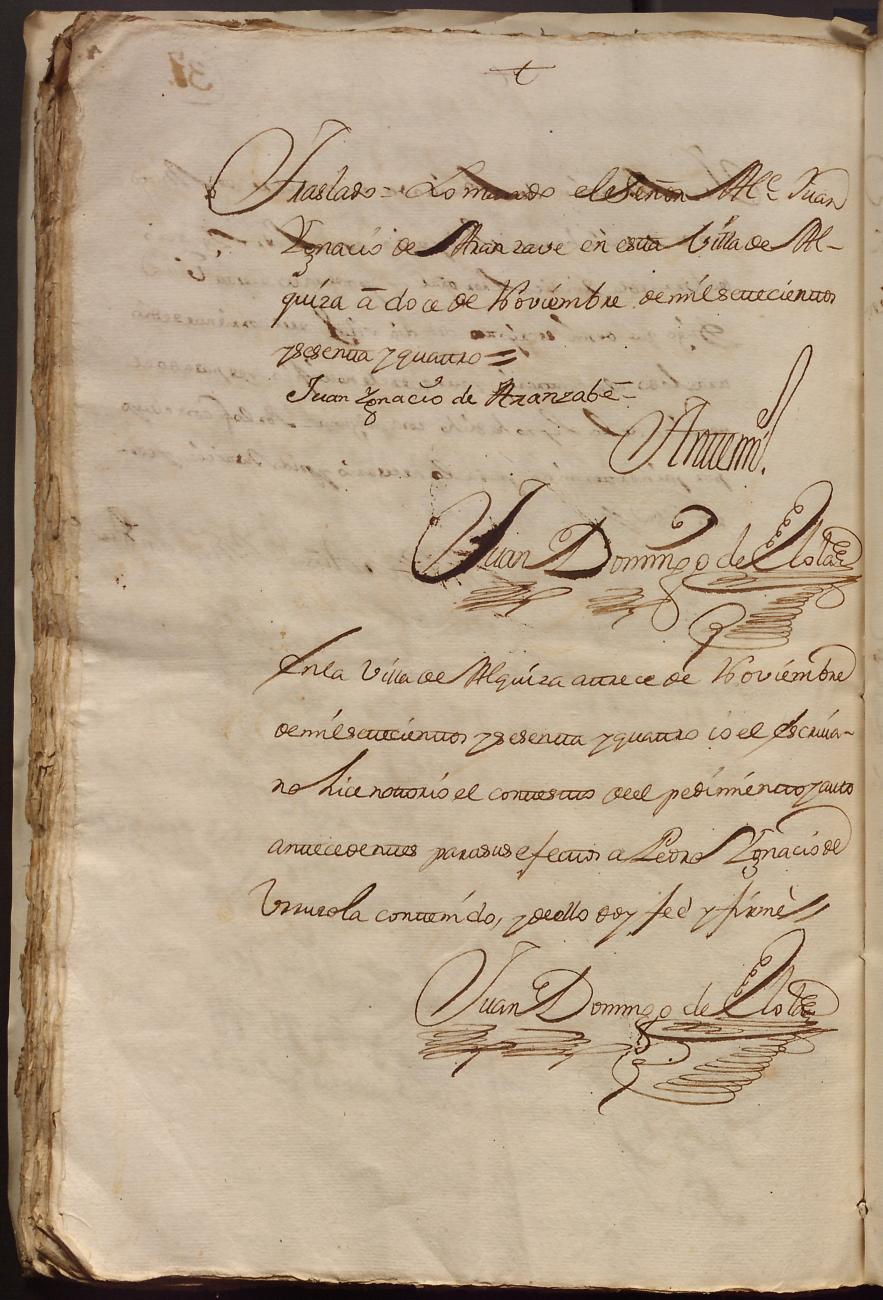 Traslado = Lo mando el Señor Al.e Juan
Ygnacio de Aranzave en esta Villa de Al-
quiza â doce de Noviembre de mil settecienttos
y sesentta y quattro =
Juan Ygnacio de Aranzabe =
Antte mi
Juan Domingo de
En la Villa de Alquiza a ttrece de Noviembre
de mil settecienttos y sesentta y quattro io el escriua-
no hice nottorio el contesto de el pedimientto y auto
anttecedenttes para sus efecttos a Pedro Ygnacio de
Vrrusola conttenido, y de ello doy feè y firmè =
Juan Domingo de